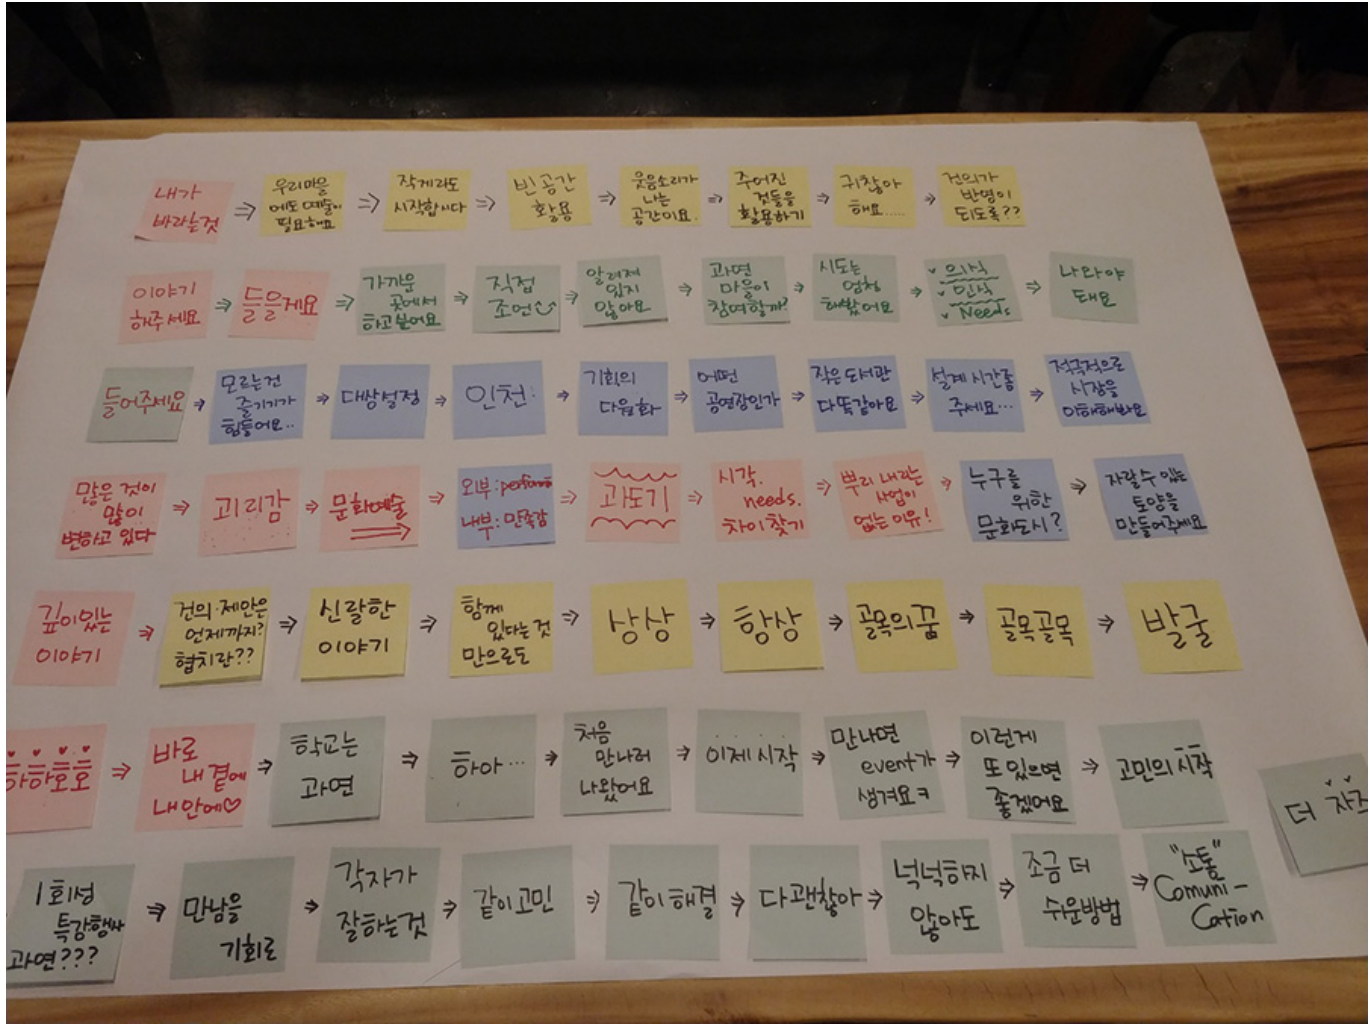 내가
바라는것
⇒
우리마을
에도 예술이
필요해요
⇒
작게라도
시작합시다
⇒
빈공간
활용
⇒
웃음소리가
나는
공간이요.
⇒
주어진
것들을
활용하기
⇒
귀찮아
해요......
⇒
건의가
반영이
되도록??
이야기
해주세요
⇒
들을게요
⇒
가까운
곳에서
하고싶어요
⇒
직접
조연
⇒
알려져
있지
않아요
⇒
과연
마을이
참여할까?
⇒
시도는
엄청
해봤어요
⇒
✓ 의식
✓ 인식
✓ Needs
⇒
나와야
돼요
들어주세요
⇒
모르는건
즐기기가
힘들어요..
⇒
대상설정
⇒
인천:
⇒
기회의
다원화
⇒
어떤
공연장인가
⇒
작은도서관
다똑같아요
⇒
설계 시간좀
주세요...
⇒
적극적으로
시장을
이해해봐요
많은 것이
많이
변하고 있다
⇒
괴리감
⇒
문화예술
⇒
외부:
내부: 만족감
⇒
과도기
⇒
시각.
needs.
차이찾기
⇒
뿌리 내리는
사업이
없는 이유!
⇒
누구를
위한
문화도시?
⇒
자랄수 있는
토양을
만들어주세요
깊이있는
이야기
⇒
건의·제안은
언제까지?
협치란??
⇒
신랄한
이야기
⇒
함께
있다는 것
만으로도
⇒
상상
⇒
항상
⇒
골목의꿈
⇒
골목골목
⇒
발굴
하하호호
⇒
바로
내 곁에
내 안에♡
⇒
학교는
과연
⇒
하아...
⇒
처음
만나러
나왔어요
⇒
이제 시작
⇒
만나면
event가
생겨요ㅋ
⇒
이런게
또 있으면
좋겠어요
⇒
고민의 시작
더 자주
1회성
특강행사
과연???
⇒
만남을
기회로
⇒
각자가
잘하는것
⇒
같이고민
⇒
같이해결
⇒
다괜찮아
⇒
넉넉하지
않아도
⇒
조금 더
쉬운방법
⇒
"소통"
Comuni-
Cation